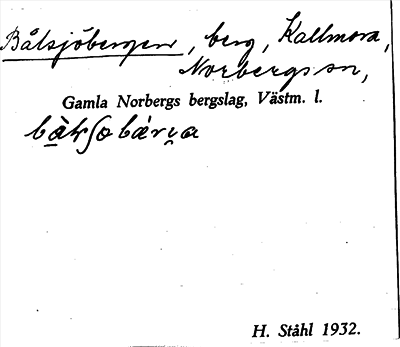 Bålsjöbergen, berg, Kallmora,
Norbergs sn,
Gamla Norbergs bergslag, Västm. l.
H. Ståhl 1932.